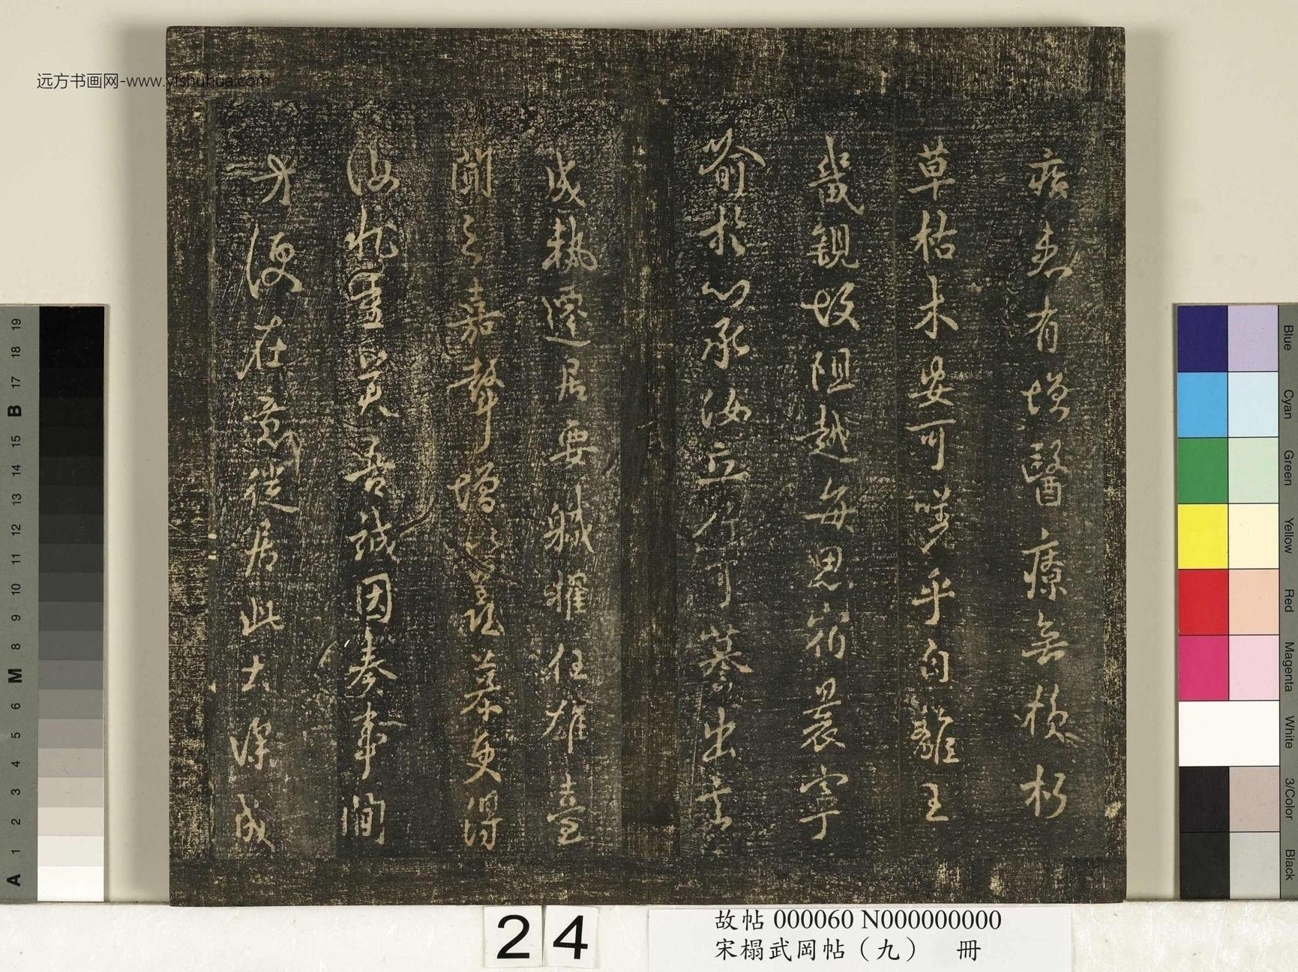 疾患有增醫療無損朽
草枯木安可嗟乎自離王
畿親故阻越每思宿晨寧
喻於心承汝立行可慕出言
成執遷居要職擢任雄臺
聞之嘉聲增
慕更得
汝
吾誠因奏事閒
才
在意從居此大深成
远方书画网-www.yishuhua.com
24
故帖 000060 N000000000
宋榻武岡帖（九） 冊
19
18
17
B
15
14
13
12
11
10
9
8
M
6
5
4
3
2
1
A
Blue
Cyan
Green
Yellow
Red
Magenta
White
3/Color
Black